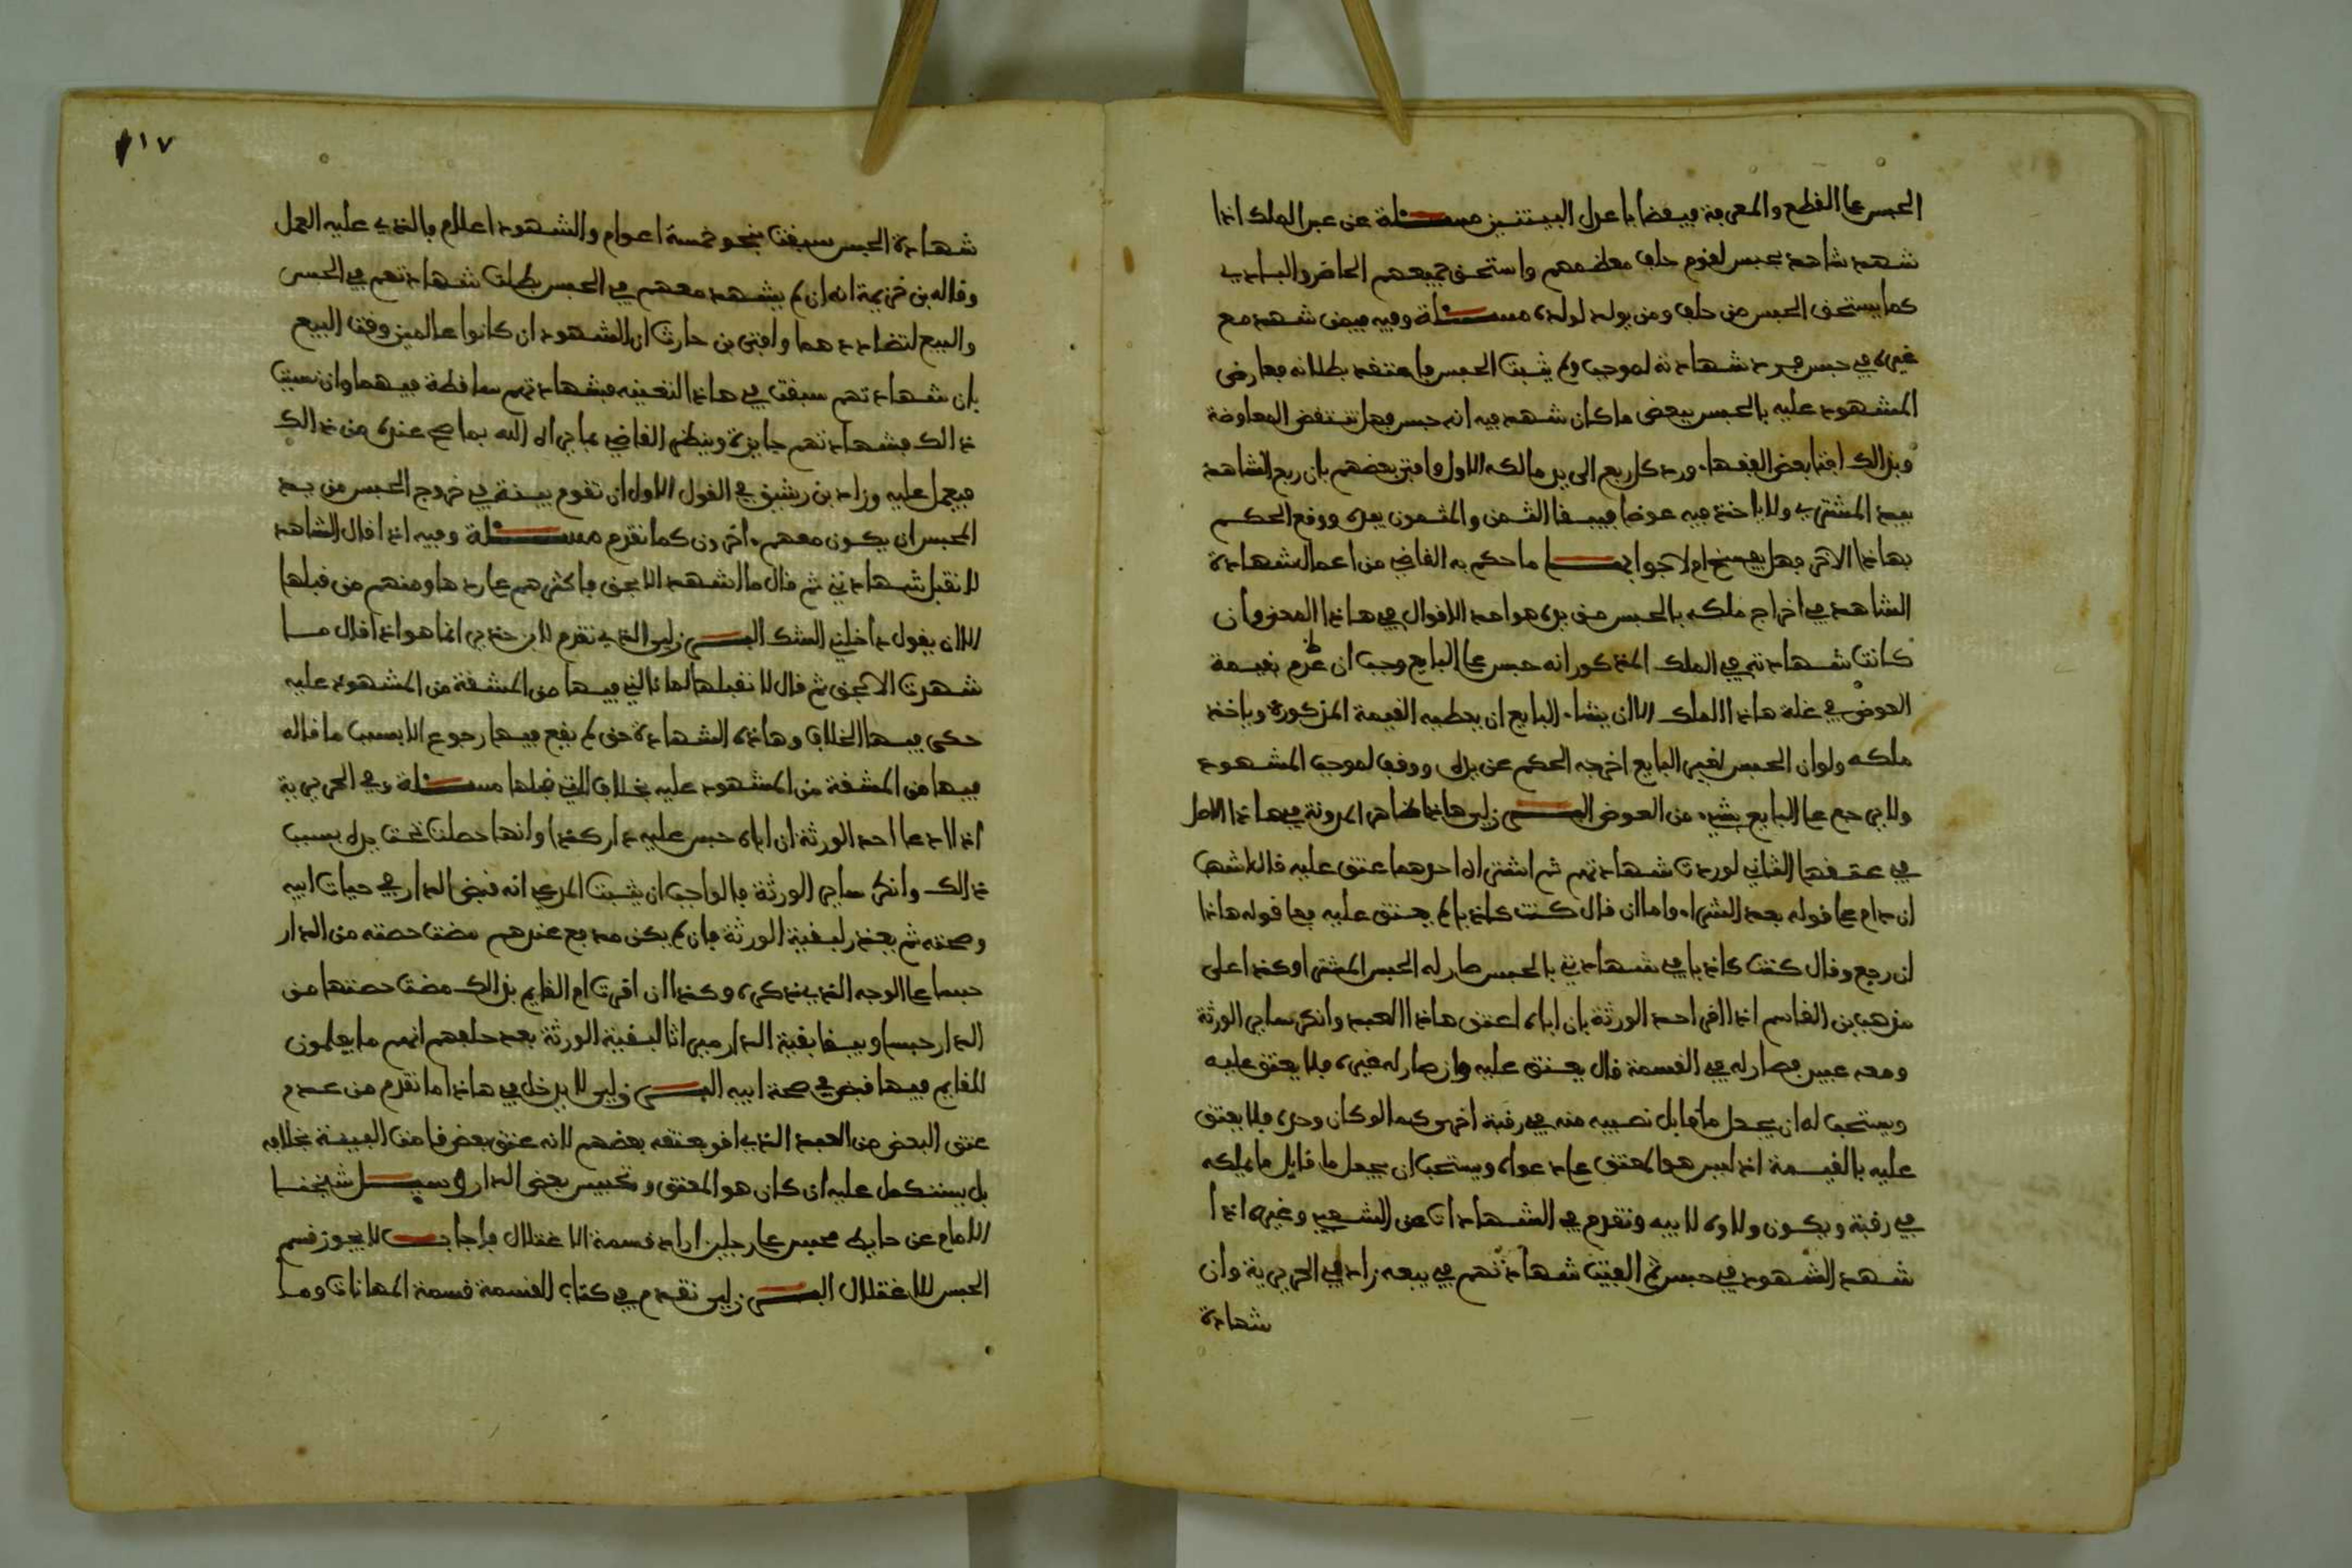 الحبس على القطع والمعرفة فيقضا باعدل البينتين مسئلة عن عبد الملك اذا
شهد شاهد بحبس لقوم حلف معظمهم واستحق جميعهم الحاضر والبادي
كما يستحق الحبس من حلف ومن يولد لولده مسئلة وفيه فيمن شهد مع
غيره في حبس فرد شهادته لموجب ولم يثبت الحبس فاعتقد بطلانه فعارض
المشهود عليه بالحبس ببعض ما كان شهد فيه انه حبس فهل تنتقض المعاوضة
وبذالك افتا بعض الفقهاء ورد كل ربع الى يد مالكه الاول وافتى بعضهم بان ربع الشاهد
بيد المشتري ولا ياخذ فيه عوضا فيبقا الثمن والمثمون بيده ووقع الحكم
بهاذا الاخر فهل يفسخ ام لا جوابها ما حكم به القاضي من اعمال شهادة
الشاهد في اخراج ملكه بالحبس من يده هو احد الاقوال في هاذا المعنى وان
كانت شهادته في الملك المذكور انه حبس على البايع وجب ان غرم بقيمة
العوض في غلة هاذا الملك الا ان يشاء البايع ان يعطيه القيمة المذكورة وياخذ
ملكه ولو ان الحبس لغير البايع اخرجه الحكم عن يده ووقف لموجب المشهود
ولا يرجع على البايع بشيء من العوض البرزلي هاذا ظاهر المدونة في هاذا الاصل
في عتقها الثاني لو ردت شهادتهم ثم اشتراه احدهما عتق عليه قال اشهب
ان دام على قوله بعد الشراء واما ان قال كنت كاذبا لم يعتق عليه فعلى قوله هاذا
ان رجع وقال كنت كاذبا في شهادتي بالحبس صار له الحبس المشترا وكذا على
مذهب بن القاسم اذا اقر احد الورثة بان اباه اعتق هاذا العبد وانكر ساير الورثة
ومعه عبيد فصار له في القسمة قال يعتق عليه وان صار له غيره فلا يعتق عليه
ويستحب له ان يجعل ما قابل نصيبه منه في رقبة اخرى كما لو كان وحده فلا يعتق
عليه بالقيمة اذ ليس هو المعتق على دعواه ويستحب ان يجعل ما قابل ما يملكه
في رقبة ويكون ولاؤه لابيه وتقدم في الشهادات عن الشعبي وغيره اذا
شهد الشهود في حبس ثم الفيت شهادتهم في بيعه زاد في الحريرية وان
شهادة
٢١٧
شهادة الحبس سبقت بنحو خمسة اعوام والشهود اعلام فالذي عليه العمل
وقاله بن خزيمة انه ان لم يشهد معهم في الحبس بطلت شهادتهم في الحبس
والبيع لتضاددهما وافتى بن حارث ان الشهود ان كانوا عالمين وقت البيع
بان شهادتهم سبقت في هاذا التعنيه فشهادتهم ساقطة فيهما وان نسيت
ذالك فشهادتهم جايزة وينظر القاضي بما يراه الله بما صح عنده من ذالك
فيعمل عليه وزاد بن رشيق في القول الاول ان تقوم بينة في خروج الحبس من يد
المحبس ان يكون معهم اخرون كما تقدم مسئلة وفيه اذا قال الشاهد
لا تقبل شهادتي ثم قال ما اشهد الا بحق فاكثرهم على ردها ومنهم من قبلها
الا ان يقول داخلني الشك البرزلي الذي تقدم لابن حديد انما هو اذا قال ما
شهدت الا بحق ثم قال لا تقبلها لما نالني فيها من المشقة من المشهود عليه
حكى فيها الخلاف وهاذه الشهادة حق لم يقع فيها رجوع الا بسبب ما قاله
فيها من المشقة من المشهود عليه بخلاف التي قبلها مسئلة وفي الحريرية
اذا ادعا احد الورثة ان اباه حبس عليه دار كذا وانها حصلت تحت يده بسبب
ذالك وانكر ساير الورثة فالواجب ان يثبت المدعي انه قبض الدار في حيات ابيه
وصحته ثم يعذر لبقية الورثة فان لم يكن مدفع عندهم مضت حصته من الدار
حبسا على الوجه الذي يذكره وكذا ان اقرت ام القايم بذالك مضت حصتها من
الدار حبسا ويبقا بقية الدار ميراثا لبقية الورثة بعد حلفهم انهم ما يعلمون
للقايم فيها قبض في صحة ابيه البرزلي لا يدخل في هاذا ما تقدم من عدم
عتق البعض من العبد الذي اقر بعتقه بعضهم لانه عتق بعض قامت البينة بخلافه
بل يستكمل عليه ان كان هو المعتق وتحبيس بعض الدار وسيل شيخنا
الامام عن حايط محبس على رجلين ارادا قسمة الاغتلال فاجاب لا يجوز قسم
الحبس للاغتلال البرزلي تقدم في كتاب القسمة قسمة المهانات وما